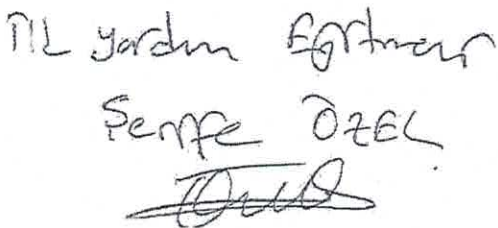 İlk yardım Eğitmeni
Şerife ÖZEL